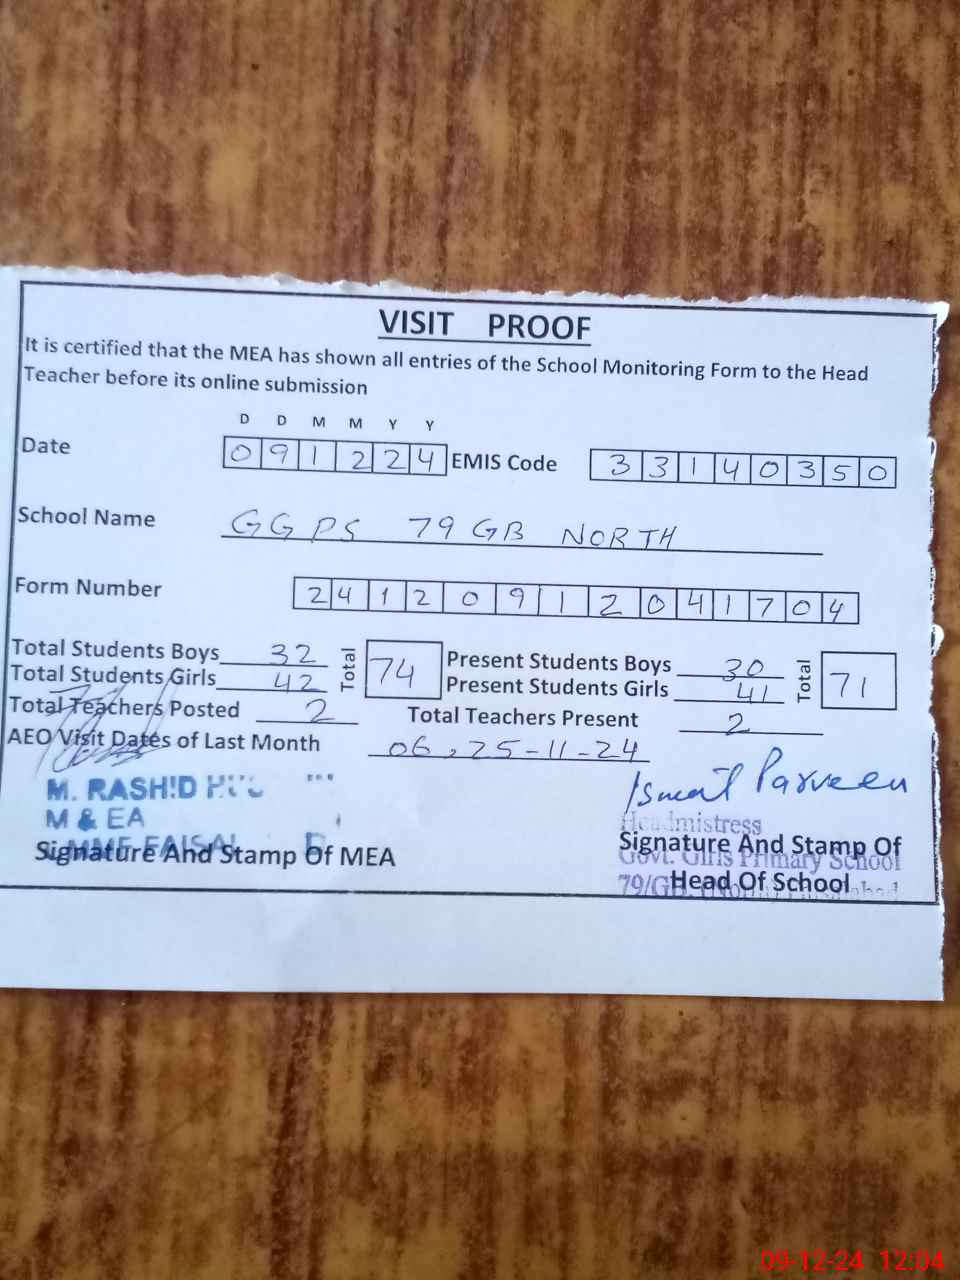 VISIT PROOF
It is certified that the MEA has shown all entries of the School Monitoring Form to the Head
Teacher before its online submission
D D M M Y Y
Date 0 9 1 2 2 4 EMIS Code 3 3 1 4 0 3 5 0
School Name GGPS 79 GB NORTH
Form Number 2 4 1 2 0 9 1 2 0 4 1 7 0 4
Total Students Boys 32 Total 74 Present Students Boys 30 Total 71
Total Students Girls 42 Present Students Girls 41
Total Teachers Posted 2 Total Teachers Present 2
AEO Visit Dates of Last Month 06, 25-11-24
Ismat Parveen
M. RASHID
M & EA
Headmistress
Signature And Stamp Of MEA
Signature And Stamp Of
Govt. Girls Primary School
Head Of School
79/GB.
09-12-24 12:04